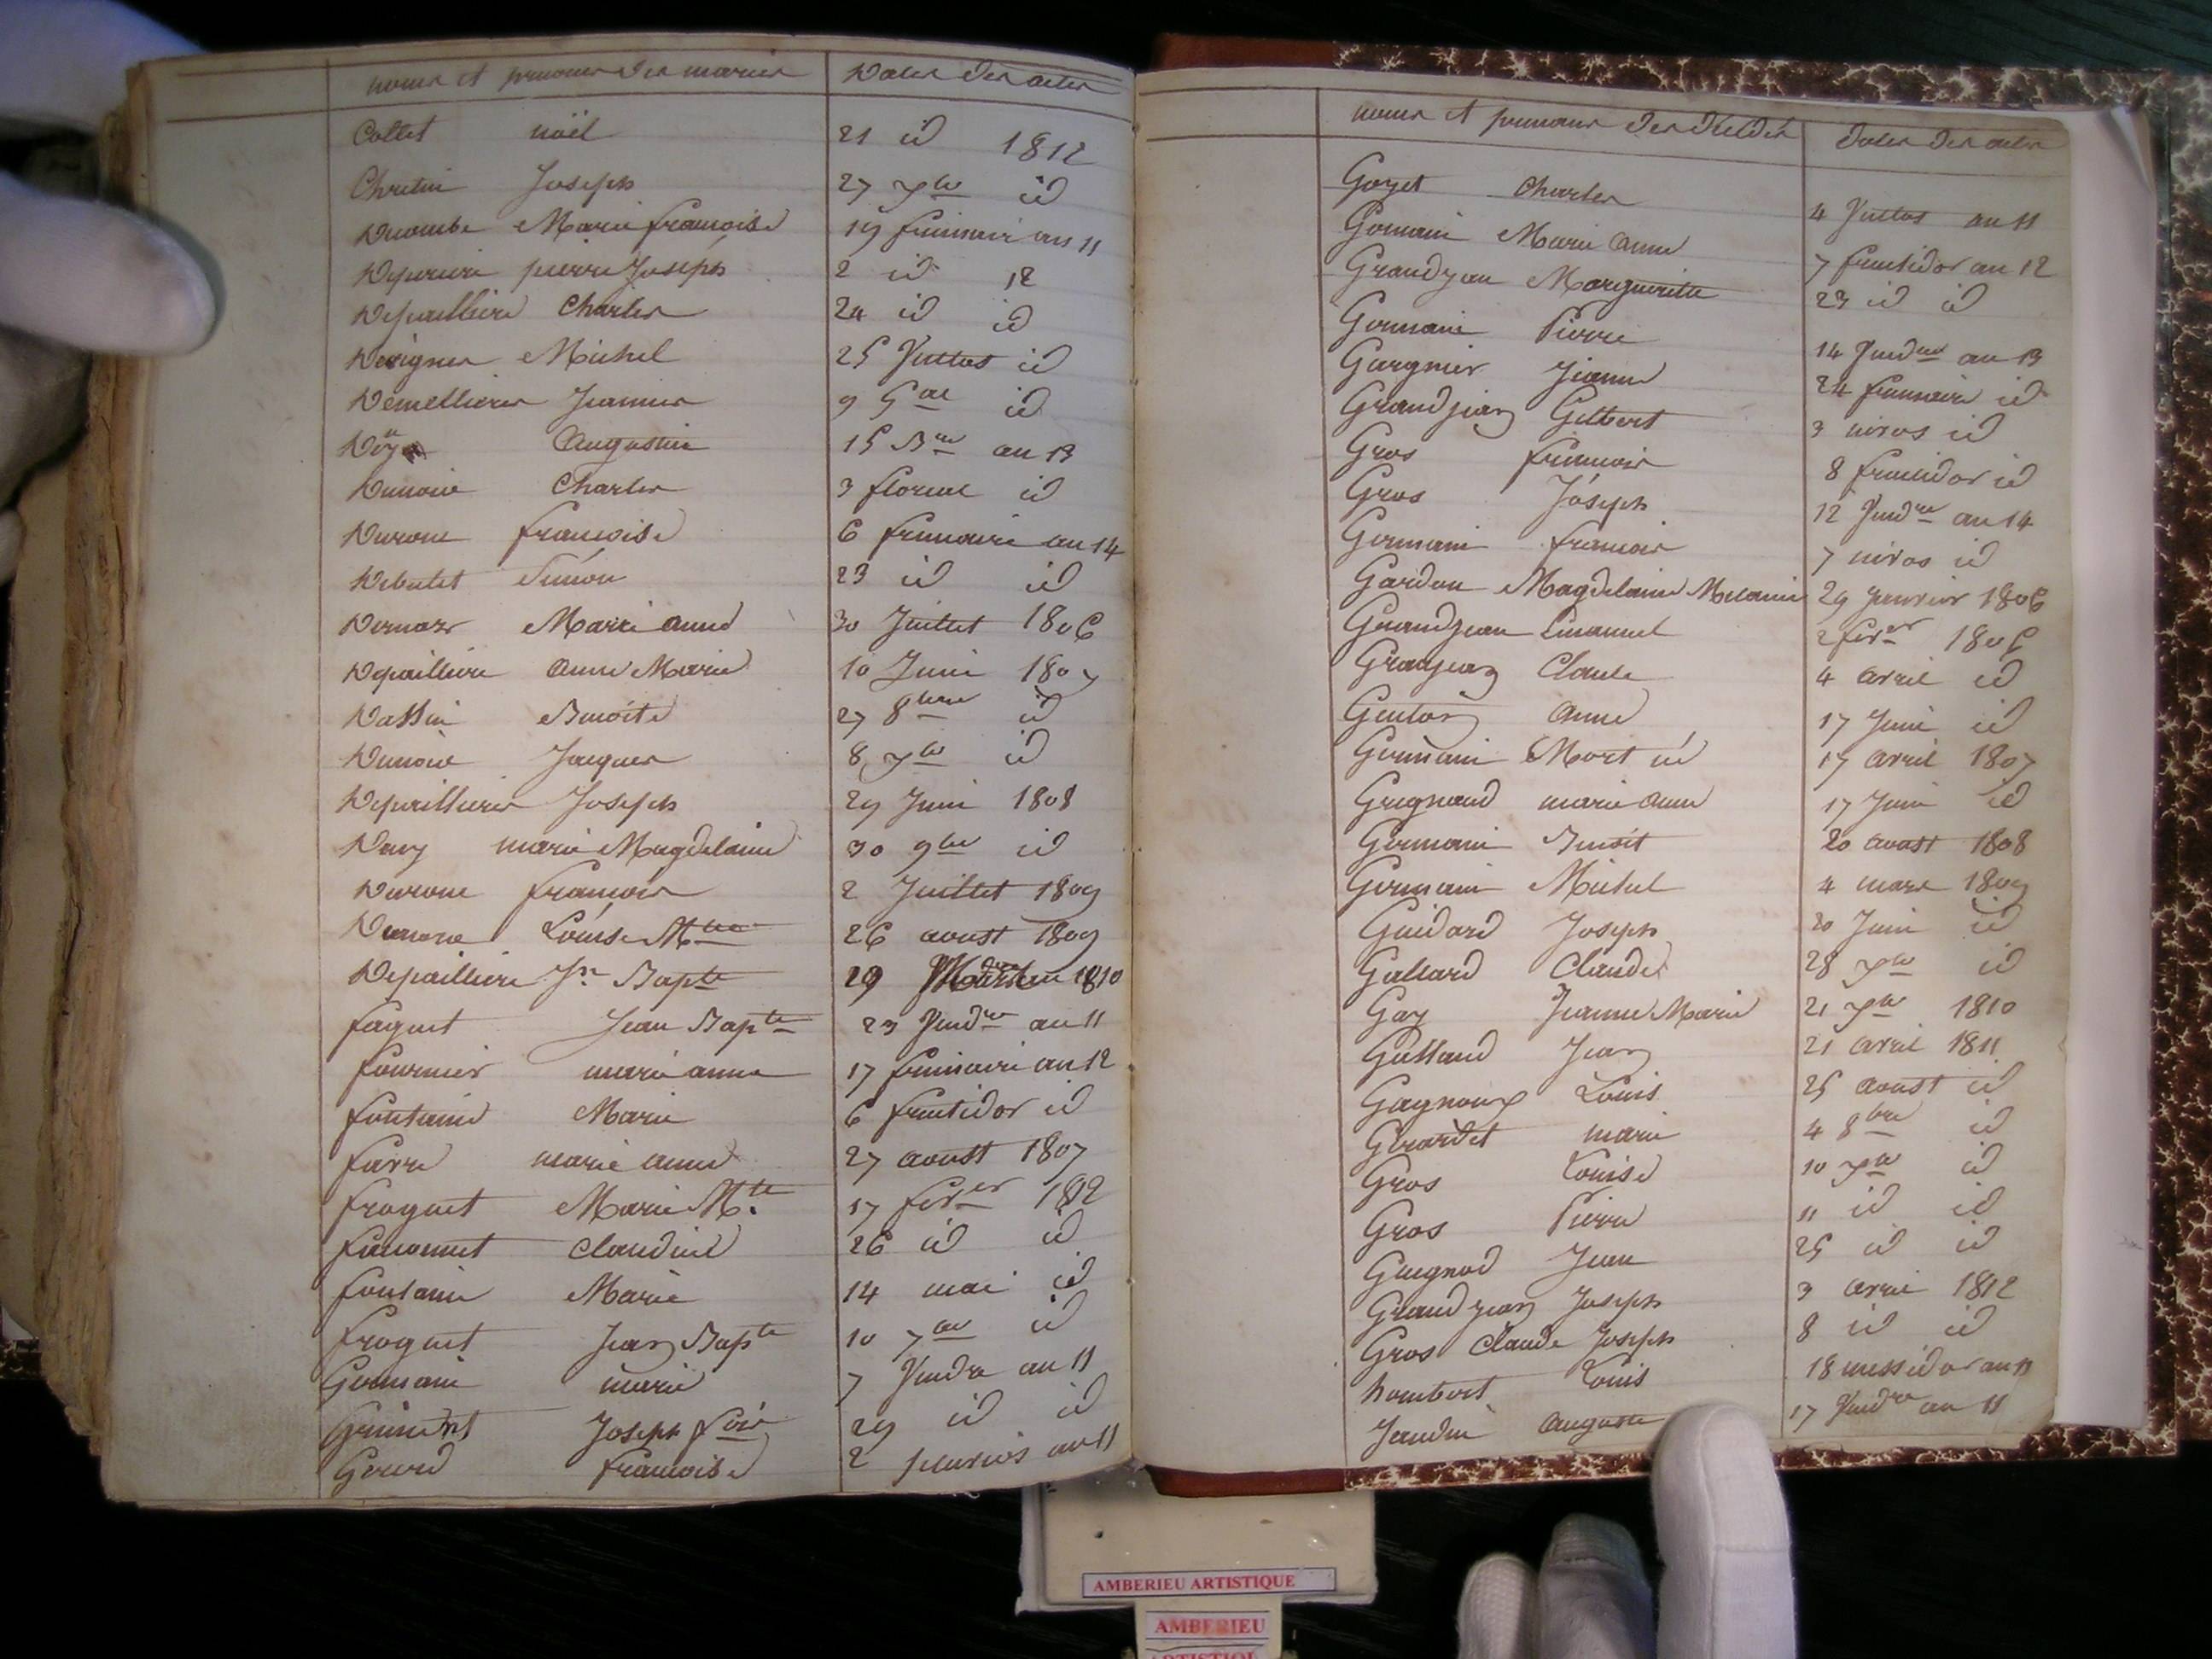 noms et prenoms des mariés Dates des actes
Collet noël 21 id 1812
Chretin Joseph 27 7bre id
Ducombe Marie francoise 19 frimaire an 11
pierre Joseph 2 id 12
Depailliere Charles 24 id id
Devignes Michel 25 Ventos id
Demellieres Jeannes 9 Gal id
Augustin 15 Bre an 13
Dunoir Charles 3 floreal id
Durone francoise 6 frimaire an 14
Debulet Simon 23 id id
Marie anne 30 Juillet 1806
Depailliere anne Marie 10 Juin 1807
Dassin Benoite 27 8bre id
Dunoir Jacques 8 7bre id
Depaillieres Joseph 29 Juin 1808
Davy marie Magdelaine 30 9bre id
Durone francois 2 Juillet 1809
Louise Mtte 26 aoust 1809
Depailliere Jn Bapte 29 1810
faguet Jean Bapte 23 Vendre an 11
fournier marie anne 17 frimaire an 12
fontaine Marie 6 fructidor id
favre marie anne 27 aoust 1807
froguet Marie Mtte 17 fevrer 1812
Claudine 26 id id
fontaine Marie 14 mai id
froguet Jean Bapte 10 7bre id
Germain marie 7 Vendre an 11
Joseph fois 29 id id
Gerard francoise 2 pluvios an 11
noms et prenoms des decédés Dates des actes
Goyet Charles 4 Ventos an 11
Germain Marie Anne 7 fructidor an 12
Grandjean Marguerite 23 id id
Germain Pierre 14 Vendre an 13
Gargnier Jeanne 24 frimaire id
Grandjean Gilbert 3 nivos id
Gros francois 8 fructidor id
Gros Joseph 12 Vendre an 14
Germain francois 7 nivos id
Gardon Magdelaine Melanie 29 Janvier 1806
Grandjean Emanuel 2 fevrer 1806
Granjean Claude 4 avril id
Genton Anne 17 Juin id
Germain Mort né 17 avril 1807
Grignaud marie anne 17 Juin id
Germain Benoit 20 aoust 1808
Germain Michel 4 mars 1809
Guidard Joseph 20 Juin id
Gallard Claude 28 7bre id
Gay Jeanne Marie 21 7bre 1810
Galland Jean 21 avril 1811
Gagnoux Louis 25 aoust id
Girardet marie 4 8bre id
Gros Louise 10 7bre id
Gros Pierre 11 id id
Guignod Jean 25 id id
Grandjean Joseph 3 avril 1812
Gros Claude Joseph 8 id id
hombert Louis 18 messidor an 11
Jandin Auguste 17 Vendre an 11
AMBERIEU ARTISTIQUE
AMBERIEU
ARTISTIQUE